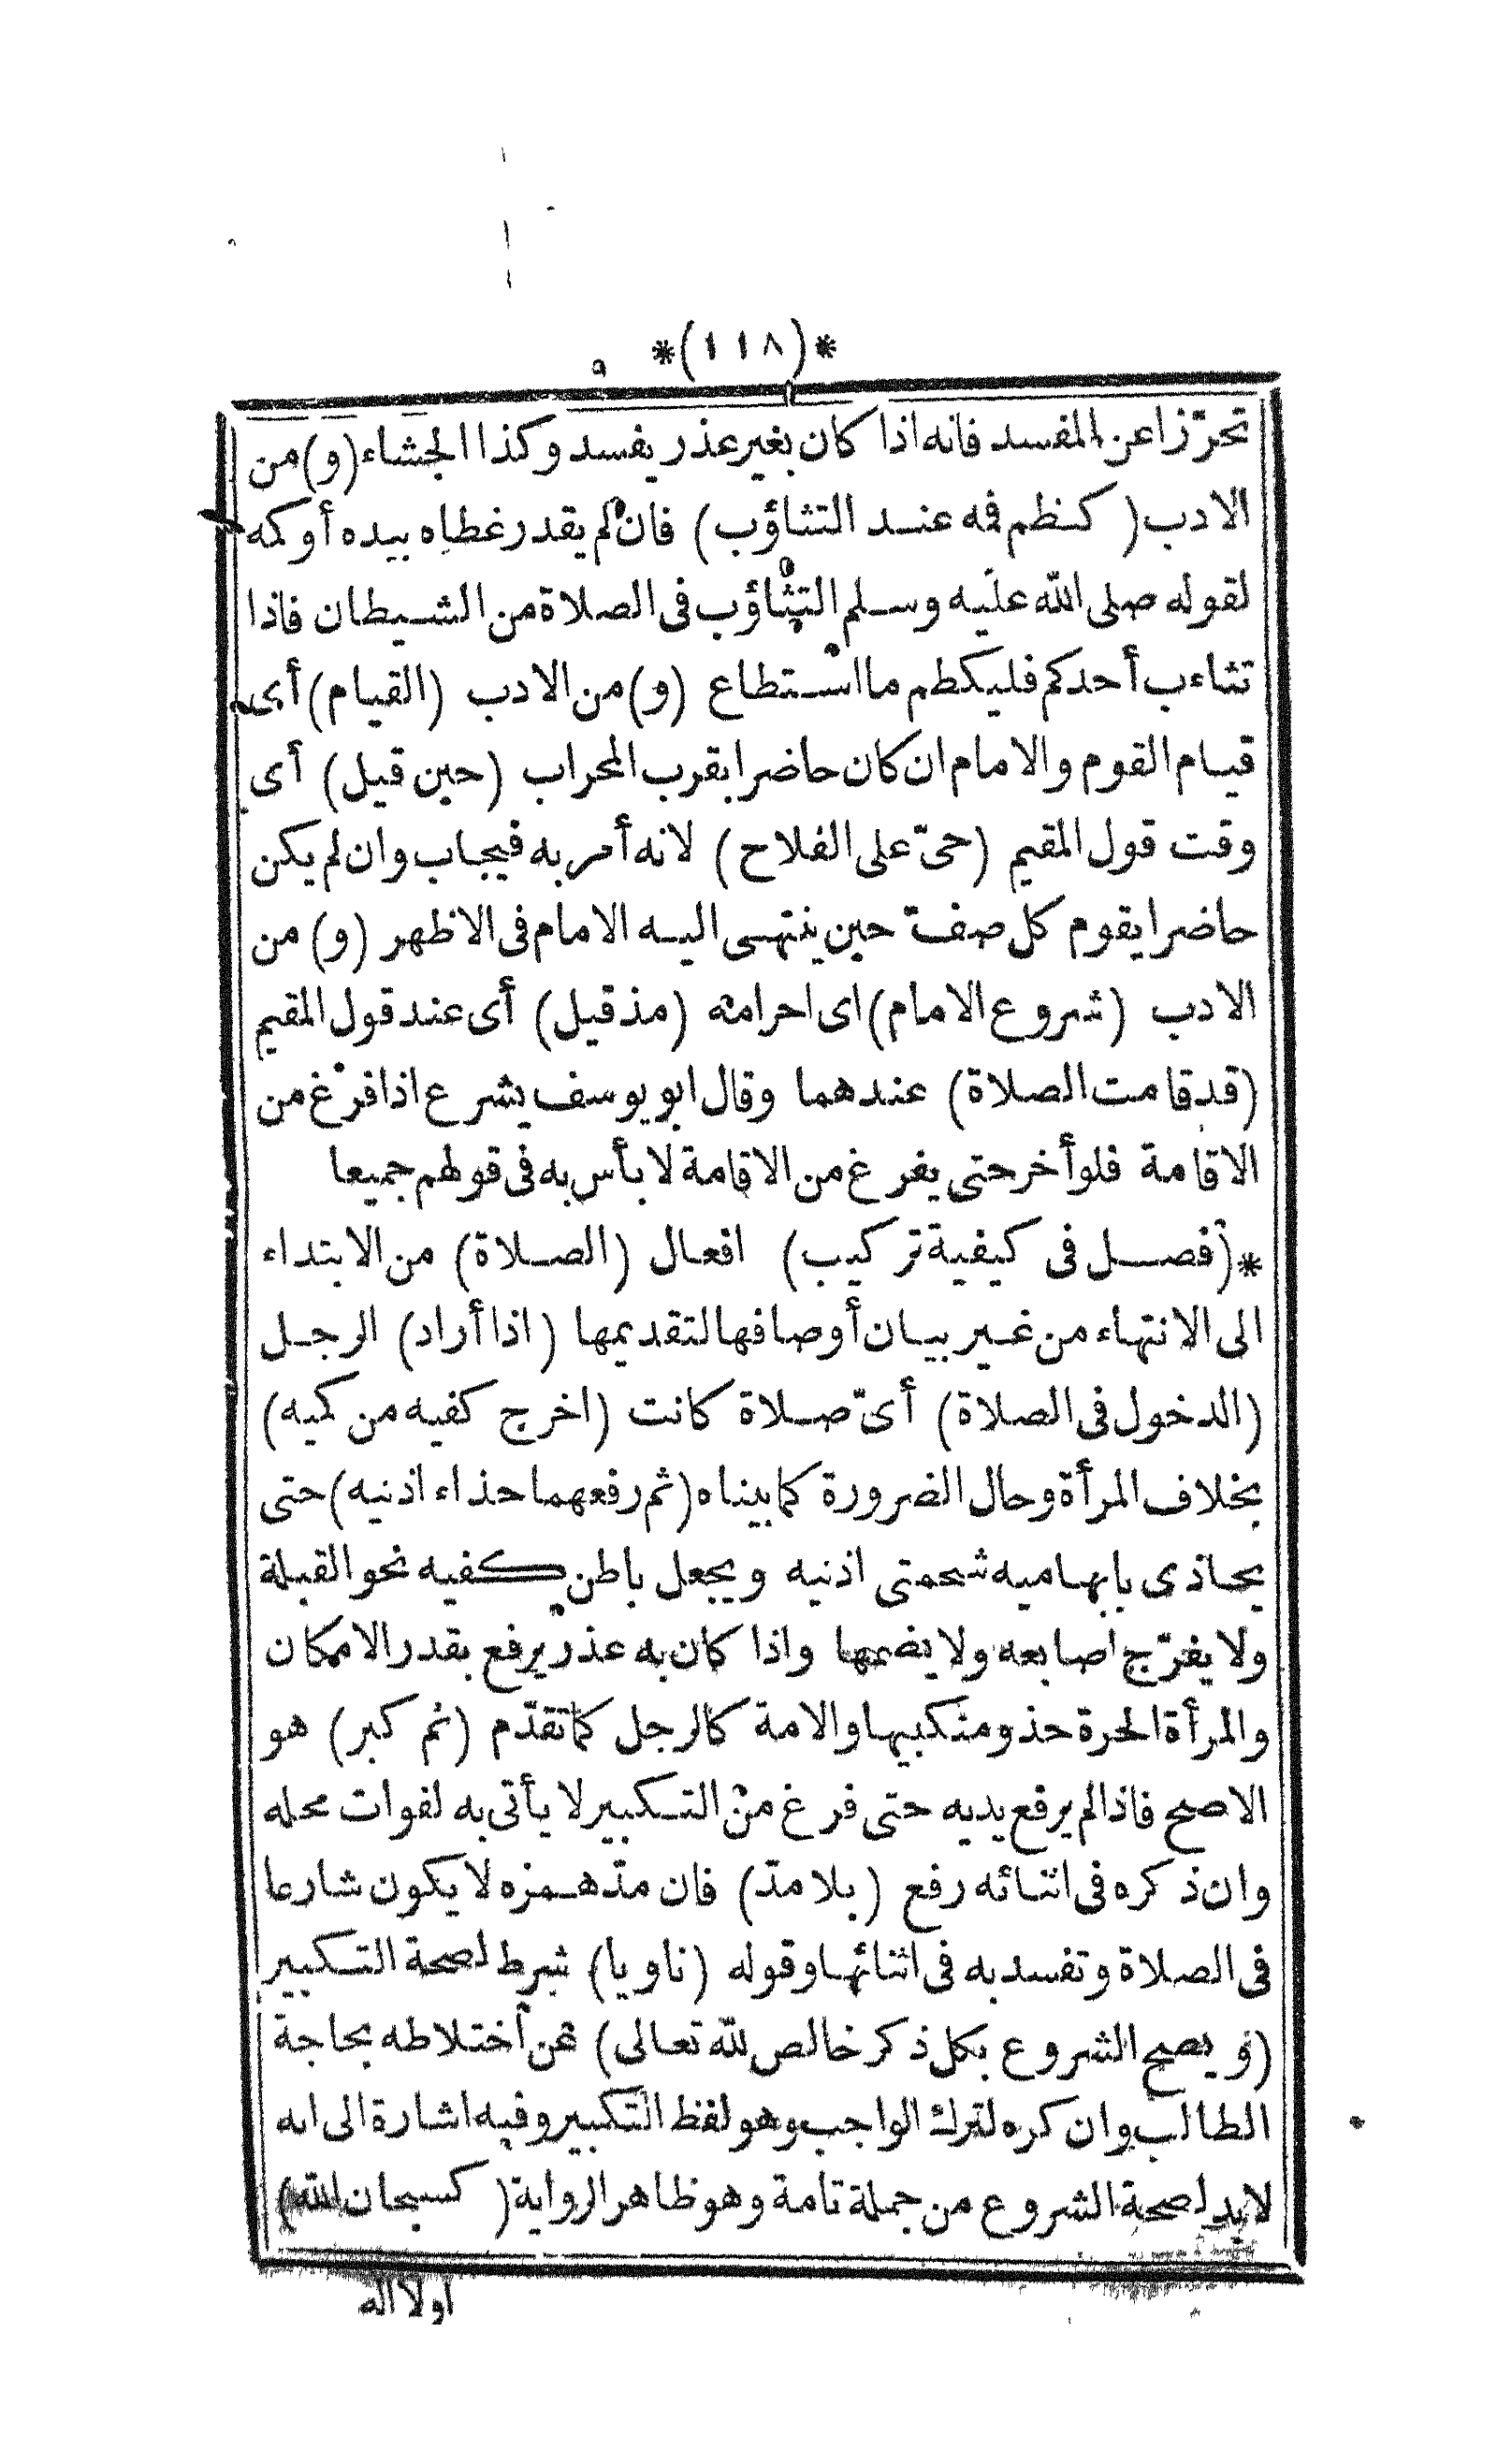 *(١١٨)*
تحرّزا عن المفسد فانه اذا كان بغير عذر يفسد وكذا الجشاء (و) من
الادب (كظم فمه عند التثاؤب) فان لم يقدر غطاه بيده أو كمه
لقوله صلى الله عليه وسلم التثاؤب فى الصلاة من الشيطان فاذا
تثاءب أحدكم فليكظم ما استطاع (و) من الادب (القيام) أى
قيام القوم والامام ان كان حاضرا بقرب المحراب (حين قيل) أى
وقت قول المقيم (حىّ على الفلاح) لانه أمر به فيجاب وان لم يكن
حاضرا يقوم كل صف حين ينتهى اليه الامام فى الاظهر (و) من
الادب (شروع الامام) اى احرامه (مذ قيل) أى عند قول المقيم
(قد قامت الصلاة) عندهما وقال ابو يوسف يشرع اذا فرغ من
الاقامة فلو أخر حتى يفرغ من الاقامة لا بأس به فى قولهم جميعا
*(فصل فى كيفية تركيب) افعال (الصلاة) من الابتداء
الى الانتهاء من غير بيان أوصافها لتقديمها (اذا أراد) الرجل
(الدخول فى الصلاة) أىّ صلاة كانت (اخرج كفيه من كميه)
بخلاف المرأة وحال الضرورة كما بيناه (ثم رفعهما حذاء اذنيه) حتى
يحاذى بابهاميه شحمتى اذنيه ويجعل باطن كفيه نحو القبلة
ولا يفرّج اصابعه ولا يضمها واذا كان به عذر يرفع بقدر الامكان
والمرأة الحرة حذو منكبيها والامة كالرجل كما تقدّم (ثم كبر) هو
الاصح فاذا لم يرفع يديه حتى فرغ من التكبير لا يأتى به لفوات محله
وان ذكره فى اثنائه رفع (بلا مدّ) فان مدّ همزه لا يكون شارعا
فى الصلاة وتفسد به فى اثنائها وقوله (ناويا) شرط لصحة التكبير
(و يصح الشروع بكل ذكر خالص لله تعالى) عن اختلاطه بحاجة
الطالب وان كره لترك الواجب وهو لفظ التكبير وفيه اشارة الى انه
لا بد لصحة الشروع من جملة تامة وهو ظاهر الرواية (كسبحان الله)
اولا اله